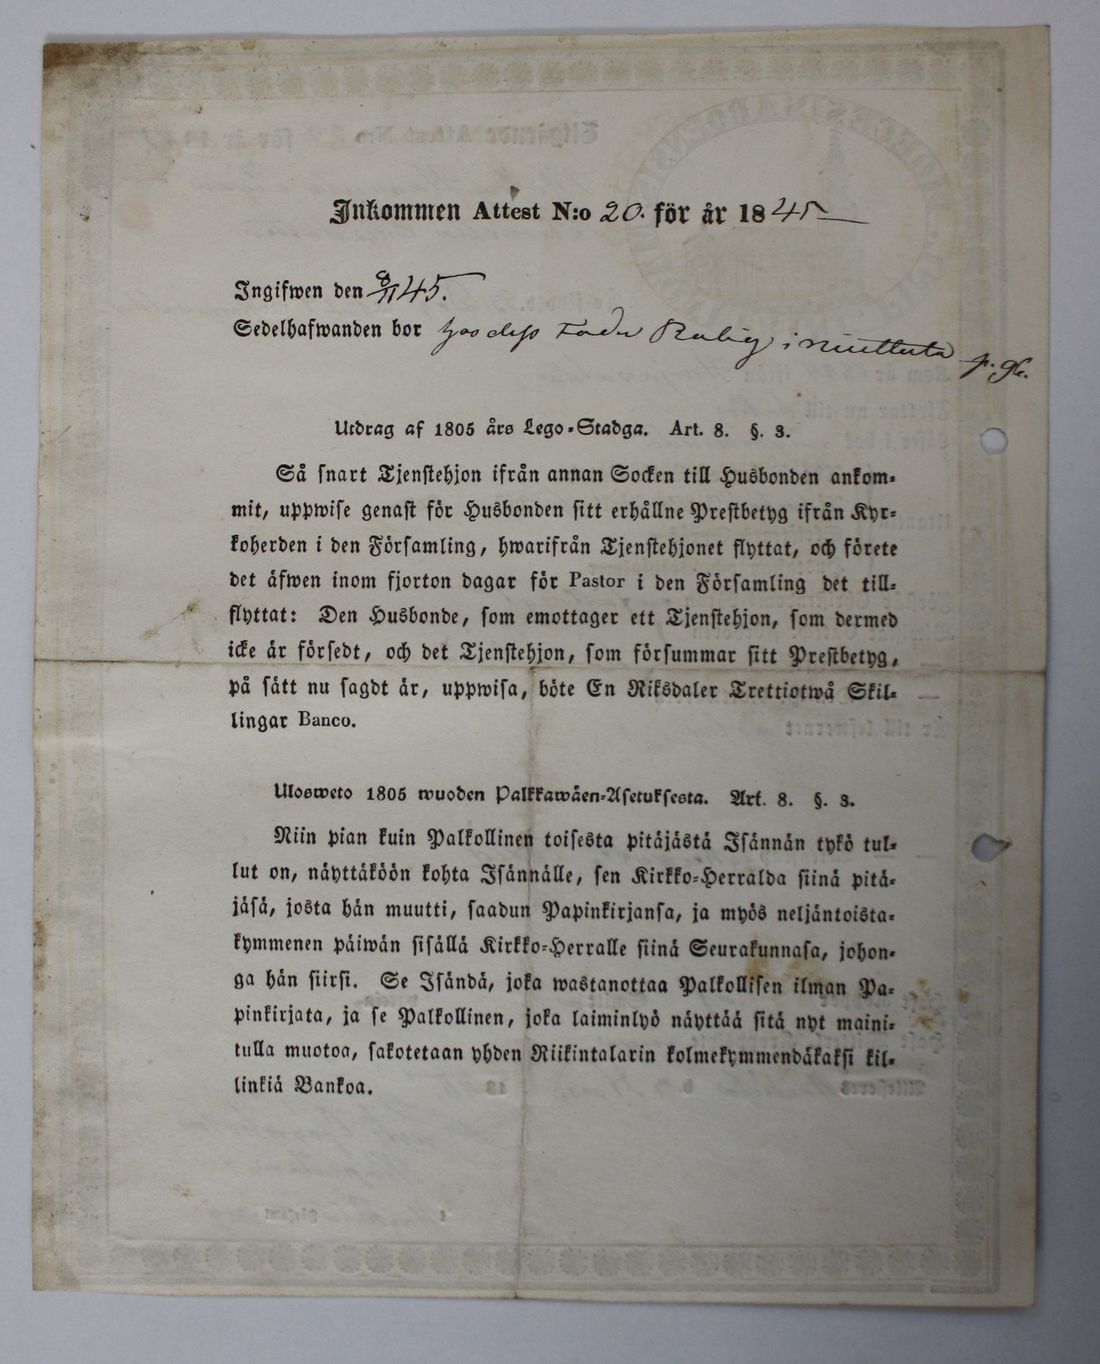 Inkommen Attest N:o 20. för år 1845
Ingifwen den 8/11 45.
Sedelhafwanden bor hos dess Fader i p. g.
Utdrag af 1805 års Lego-Stadga. Art. 8. §. 3.
Så snart Tjenstehjon ifrån annan Socken till Husbonden ankom-
mit, uppwise genast för Husbonden sitt erhållne Prestbetyg ifrån Kyr-
koherden i den Församling, hwarifrån Tjenstehjonet flyttat, och förete
det äfwen inom fjorton dagar för Pastor i den Församling det till-
flyttat: Den Husbonde, som emottager ett Tjenstehjon, som dermed
icke är försedt, och det Tjenstehjon, som försummar sitt Prestbetyg,
på sätt nu sagdt är, uppwisa, böte En Riksdaler Trettiotwå Skil-
lingar Banco.
Ulosweto 1805 wuoden Palkkawäen-Asetuksesta. Art. 8. §. 3.
Niin pian kuin Palkollinen toisesta pitäjästä Isännän tykö tul-
lut on, näyttäköön kohta Isännälle, sen Kirkko-Herralda siinä pitä-
jäsä, josta hän muutti, saadun Papinkirjansa, ja myös neljäntoista-
kymmenen päiwän sisällä Kirkko-Herralle siinä Seurakunnasa, johon-
ga hän siirsi. Se Isändä, joka wastanottaa Palkollisen ilman Pa-
pinkirjata, ja se Palkollinen, joka laiminlyö näyttää sitä nyt maini-
tulla muotoa, sakotetaan yhden Riikintalarin kolmekymmendäkaksi kil-
linkiä Bankoa.